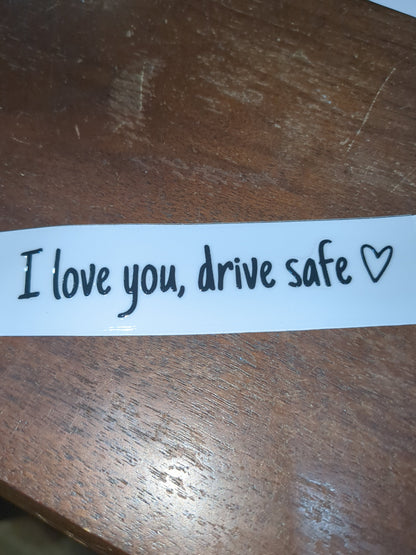 I love you, drive safe ♡